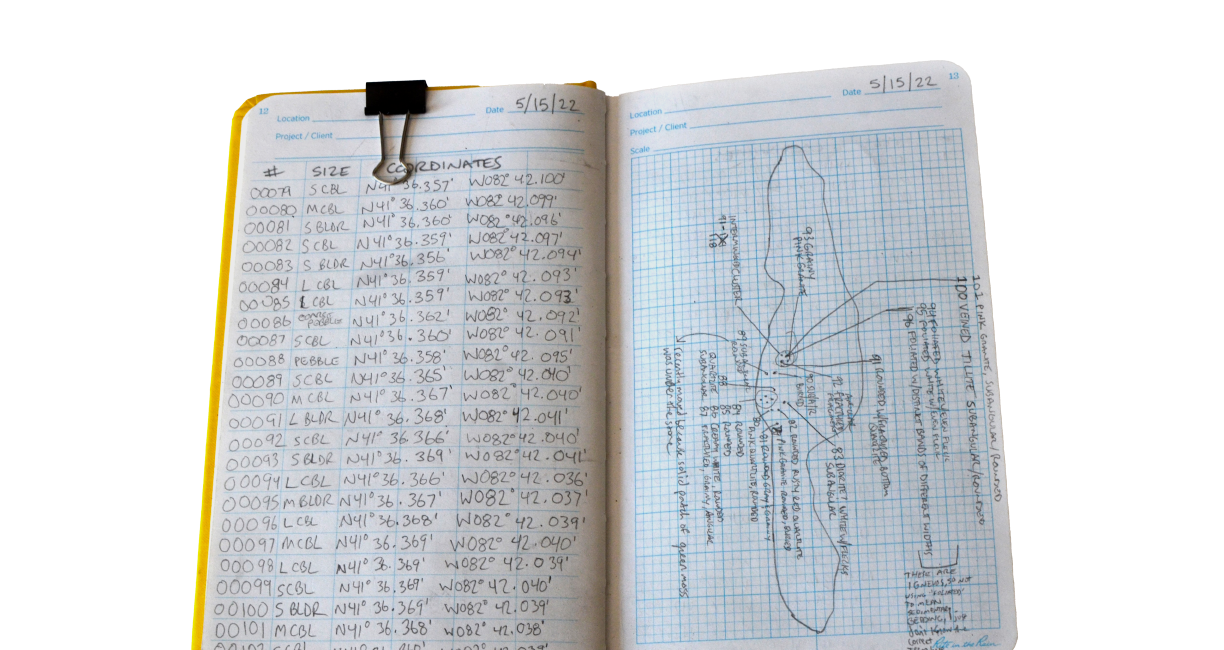 12
Location
Date 5/15/22
Project / Client
# SIZE COORDINATES
00079 SCBL N41° 36.357' W082° 42.100'
00080 MCBL N41° 36.360' W082° 42.099'
00081 SBLDR N41° 36.360' W082° 42.096'
00082 SCBL N41° 36.359' W082° 42.097'
00083 S BLDR N41° 36.356' W082° 42.094'
00084 L CBL N41° 36.359' W082° 42.093'
00085 L CBL N41° 36.359' W082° 42.093'
00086 N41° 36.362' W082° 42.092'
00087 SCBL N41° 36.360' W082° 42.091'
00088 PEBBLE N41° 36.358' W082° 42.095'
00089 SCBL N41° 36.365' W082° 42.040'
00090 MCBL N41° 36.367' W082° 42.040'
00091 L BLDR N41° 36.368' W082° 42.041'
00092 SCBL N41° 36.366' W082° 42.040'
00093 SBLDR N41° 36.369' W082° 42.041'
00094 LCBL N41° 36.366' W082° 42.036'
00095 MBLDR N41° 36.367' W082° 42.037'
00096 LCBL N41° 36.368' W082° 42.039'
00097 MCBL N41° 36.369' W082° 42.040'
00098 LCBL N41° 36.369' W082° 42.039'
00099 SCBL N41° 36.369' W082° 42.040'
00100 S BLDR N41° 36.369' W082° 42.039'
00101 MCBL N41° 36.368' W082° 42.038'
13
Location
Date 5/15/22
Project / Client
Scale
101 PINK GRANITE, SUBANGULAR/ROUNDED
100 VEINED TILLITE SUBANGULAR/ROUNDED
96 FOLIATED W/DISTINCT BANDS OF DIFFERENT WIDTHS
91 ROUNDED W/ BANDED BOTTOM
QUARTZITE
93 GRAINY
PINK GRANITE
INTERWOVEN CLUSTER
91-
118
83 DIORITE? WHITE W/
SUBANGULAR
82 ROUNDED, RUSTY RED QUARTZITE
81 ROUNDED, GRAY, GRAINY
80 PINK QUARTZITE, ROUNDED
84 ROUNDED
85 ROUNDED
86 CREAMY WHITE, ROUNDED
88
QUARTZITE
SUBANGULAR
√ recently moved because solid patch of green moss
was under the stone
THERE ARE
IGNEOUS, SO NOT
USING "FOLIATED"
TO MEAN
SEDIMENTARY
BEDDING, I JUST
DON'T KNOW THE
CORRECT
Rite in the Rain